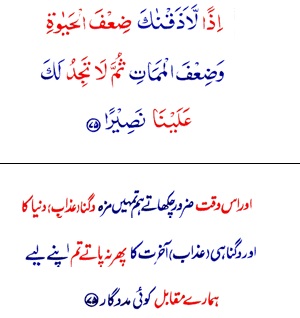 اِذًا لَّاَذَقْنٰكَ ضِعْفَ الْحَيٰوةِ
وَضِعْفَ الْمَمَاتِ ثُمَّ لَا تَجِدُ لَكَ
عَلَيْنَا نَصِيْرًا ﴿۷۵﴾
اور اس وقت ضرور چکھاتے ہم تمہیں مزہ دگنا (عذاب) دنیا کا
اور دگنا ہی (عذاب) آخرت کا پھر نہ پاتے تم اپنے لیے
ہمارے مقابل کوئی مددگار ﴿۷۵﴾